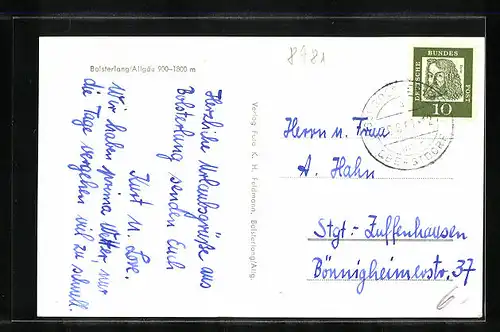 Bolsterlang/Allgäu 900-1800 m
Herzliche Urlaubsgrüße aus
Bolsterlang senden Euch
Kurt u. Lore.
Wir haben prima Wetter, nur
die Tage vergehen viel zu schnell.
Verlag Foto K. H. Feldmann, Bolsterlang/Allg.
8781
DEUTSCHE BUNDES POST
10
OBERSTDORF
Herrn u. Frau
A. Hahn
Stgt.-Zuffenhausen
Bönnigheimerstr. 37
6.-